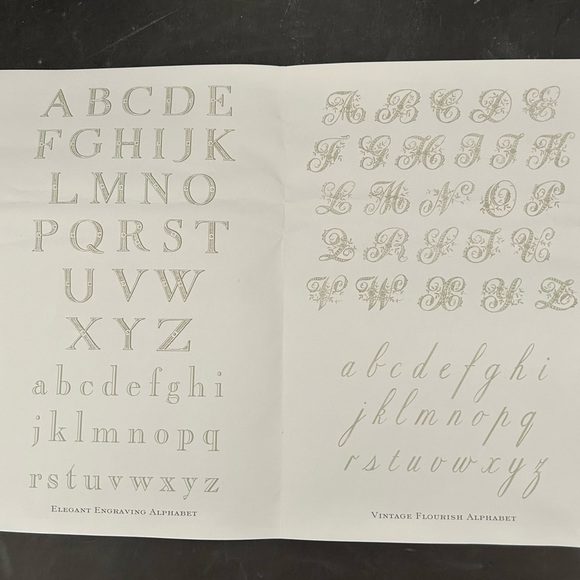 A B C D E
F G H I J K
L M N O
P Q R S T
U V W
X Y Z
a b c d e f g h i
j k l m n o p q
r s t u v w x y z
Elegant Engraving Alphabet
A B C D E
F G H I J K
L M N O P
Q R S T U
V W X Y Z
a b c d e f g h i
j k l m n o p q
r s t u v w x y z
Vintage Flourish Alphabet